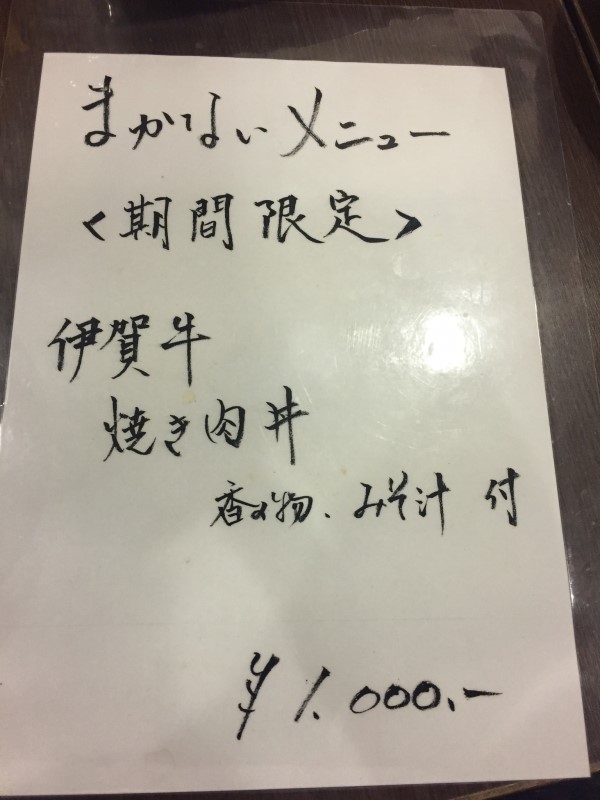 まかないメニュー
<期間限定>
伊賀牛
焼き肉丼
香の物、みそ汁 付
¥1.000.-